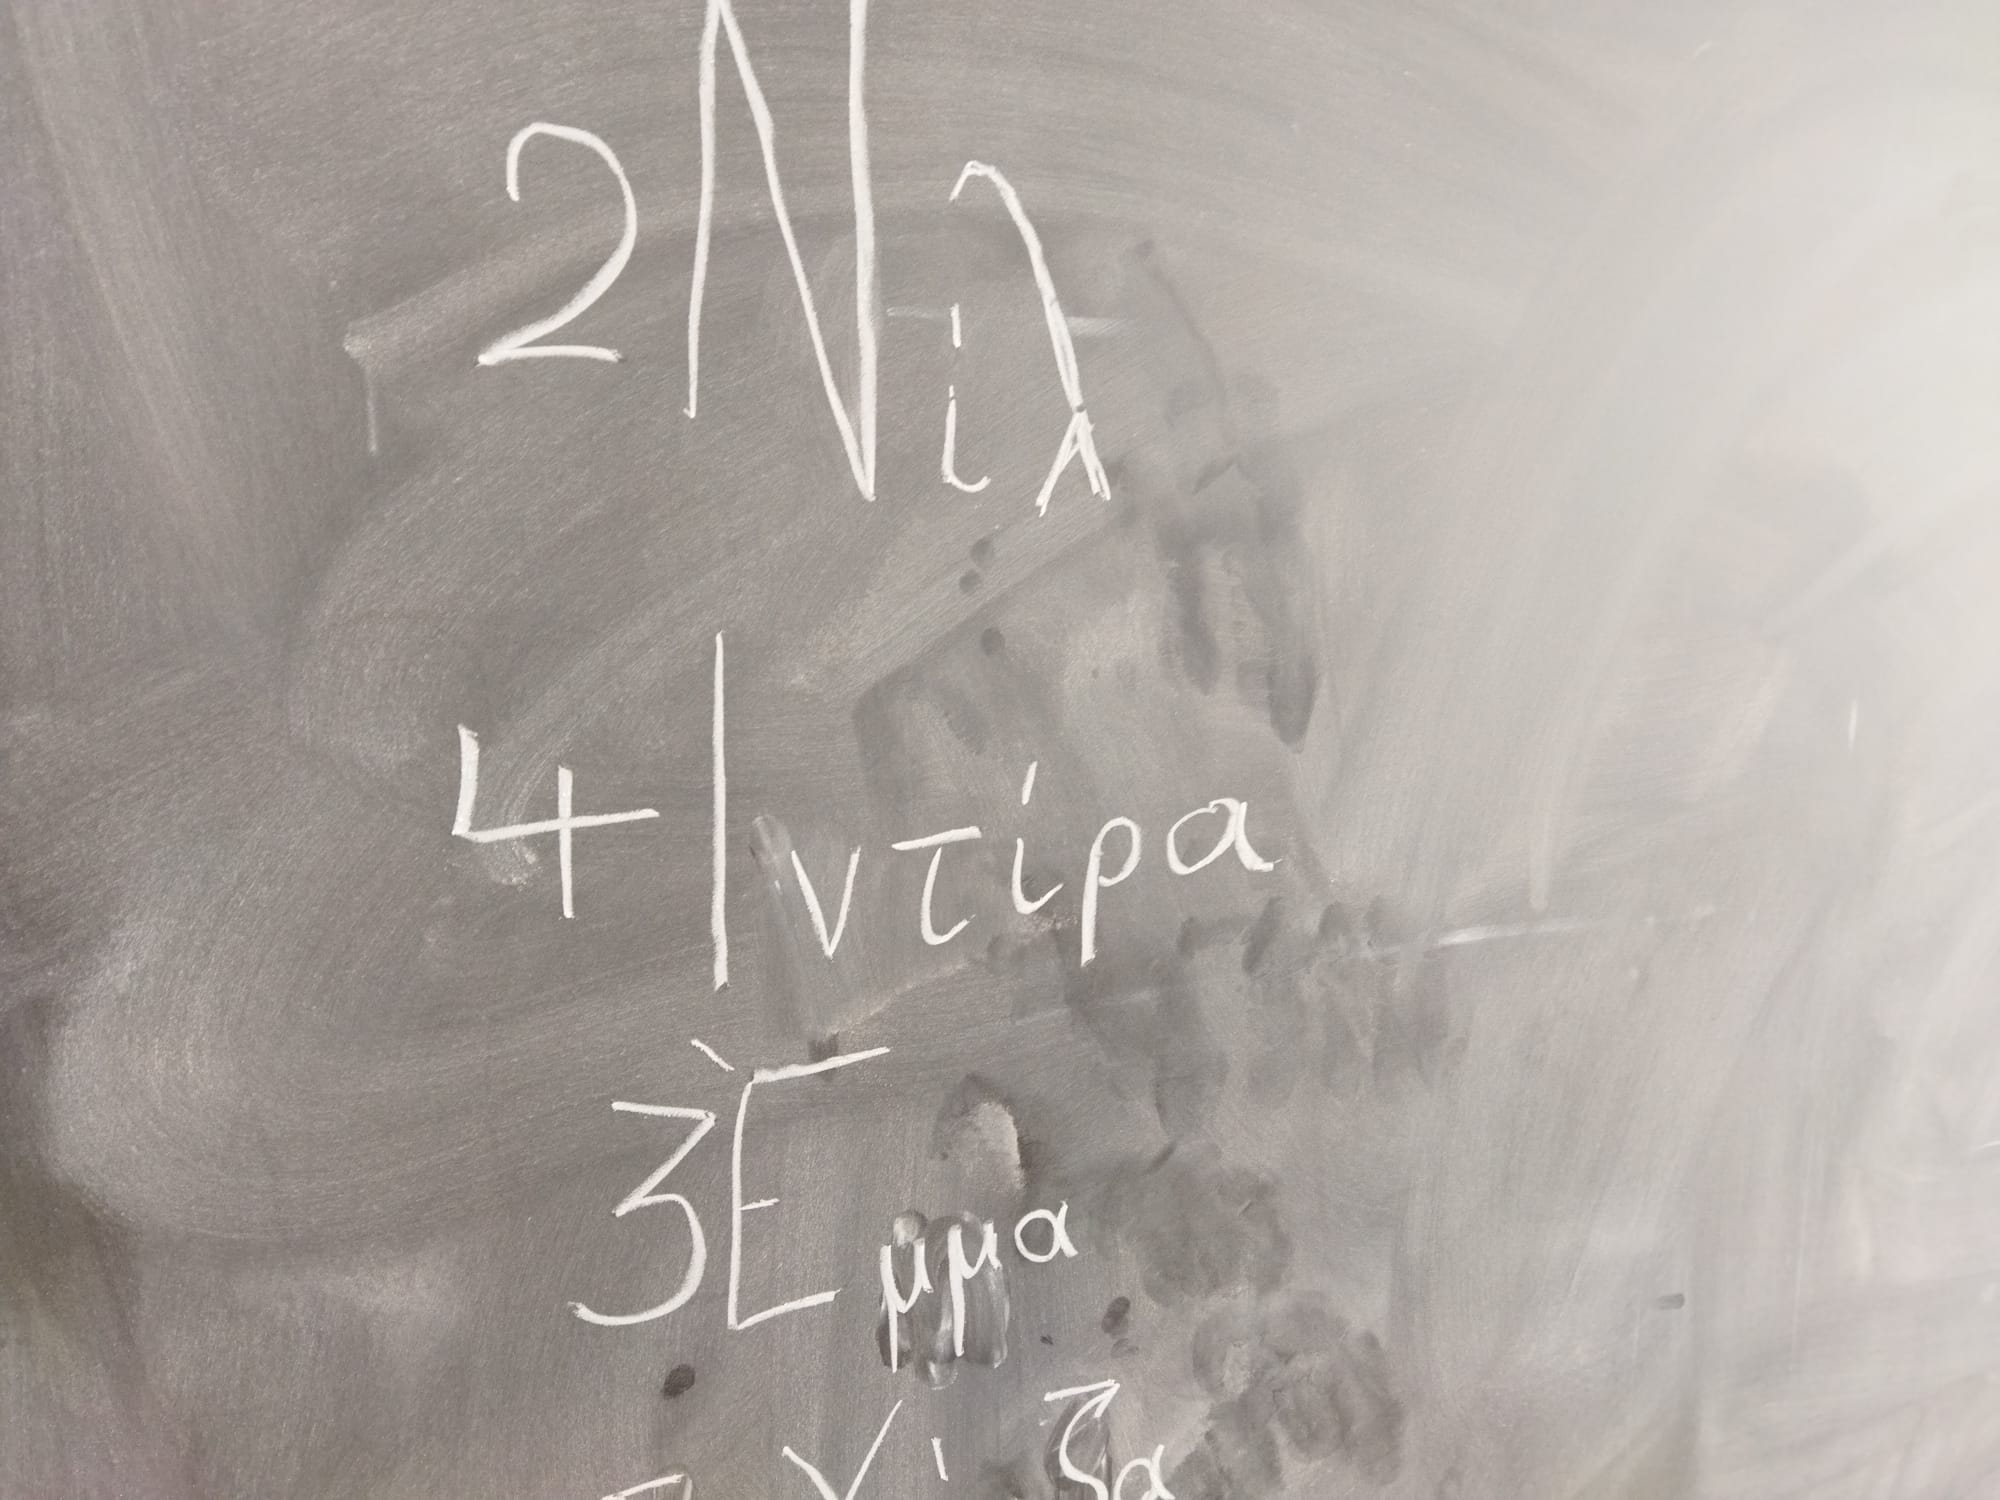 2 Νίλ
4 Ιντίρα
3 Έμμα